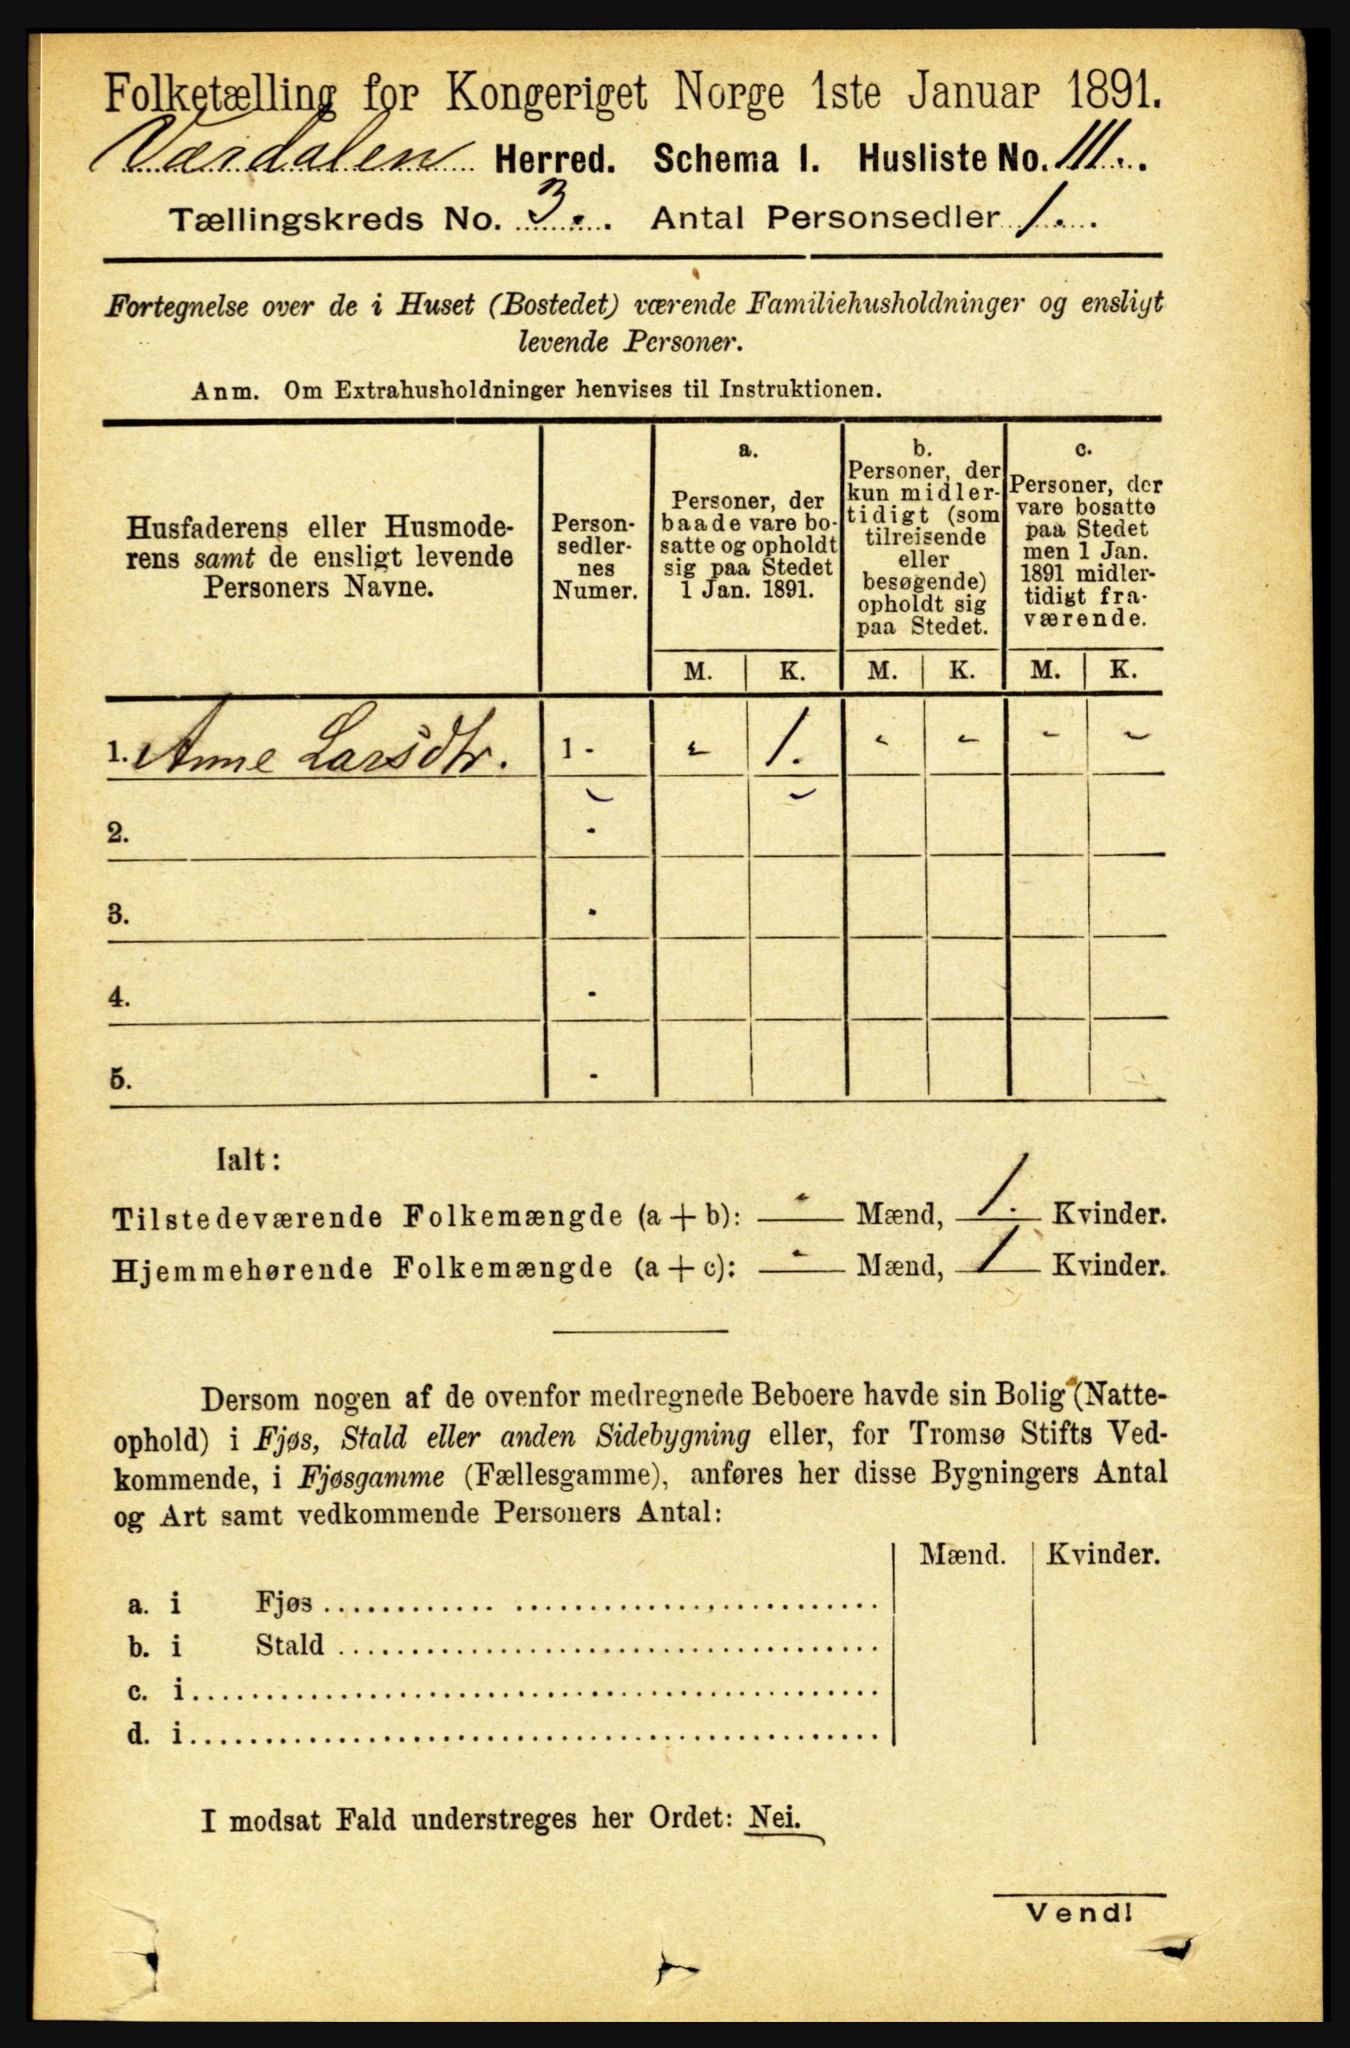 Folketælling for Kongeriget Norge 1ste Januar 1891.
Værdalen Herred. Schema I. Husliste No. 111.
Tællingskreds No. 3. Antal Personsedler 1.
Fortegnelse over de i Huset (Bostedet) værende Familiehusholdninger og ensligt
levende Personer.
Anm. Om Extrahusholdninger henvises til Instruktionen.
Husfaderens eller Husmode-
rens samt de ensligt levende
Personers Navne.
Person-
sedler-
nes
Numer.
a.
Personer, der
baade vare bo-
satte og opholdt
sig paa Stedet
1 Jan. 1891.
b.
Personer, der
kun midler-
tidigt (som
tilreisende
eller
besøgende)
opholdt sig
paa Stedet.
c.
Personer, der
vare bosatte
paa Stedet
men 1 Jan.
1891 midler-
tidigt fra-
værende.
M. K. M. K. M. K.
1. Anne Larsdtr. 1 - - 1. - - - -
2. -
3. -
4. -
5. -
Ialt:
Tilstedeværende Folkemængde (a + b): - Mænd, 1. Kvinder.
Hjemmehørende Folkemængde (a + c): - Mænd, 1 Kvinder.
Dersom nogen af de ovenfor medregnede Beboere havde sin Bolig (Natte-
ophold) i Fjøs, Stald eller anden Sidebygning eller, for Tromsø Stifts Ved-
kommende, i Fjøsgamme (Fællesgamme), anføres her disse Bygningers Antal
og Art samt vedkommende Personers Antal:
Mænd. Kvinder.
a. i Fjøs
b. i Stald
c. i
d. i
I modsat Fald understreges her Ordet: Nei.
Vend!